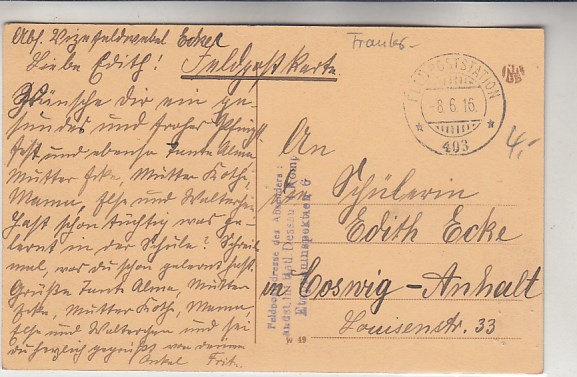 Abs. Vizefeldwebel Ecker
Franks-
Liebe Edith! Feldpostkarte
Wünsche Dir ein ge-
sundes und frohes Pfingst-
fest und ebenso Tante Alma,
Mutter Ecke, Mutter Köthe,
Mama, Else und Walterchen.
Hast schon tüchtig was ge-
lernt in der Schule? Schreib
mal, was du schon gelernt hast.
Grüße Tante Alma, Mutter
Ecke, Mutter Köth, Mama,
Else und Walterchen und sei
du herzlich gegrüßt von deinem
Onkel Fritz.
FELDPOSTSTATION
-8.6.16.
* 403 *
4,-
An
Schülerin
Edith Ecke
in Coswig-Anhalt
Louisenstr. 33
Feldpostadresse des Absenders:
Landst. Inf. Batl Dessau Komp
Etappeninspektion 6
W 49